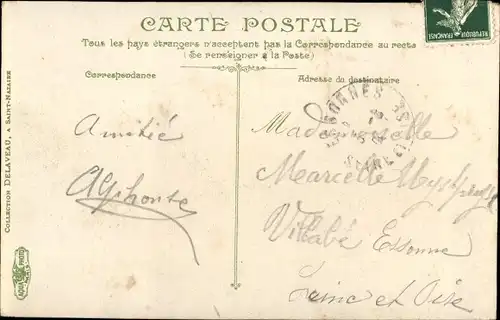 CARTE POSTALE
Tous les pays étrangers n'acceptent pas la Correspondance au recto
(Se renseigner à la Poste)
Correspondance
Adresse du destinataire
RÉPUBLIQUE FRANÇAISE
COLLECTION DELAVEAU, A SAINT-NAZAIRE
AQUA PHOTO
Amitié
Alphonte
Mademoiselle
Marcelle
Villabé Essonne
Seine et Oise